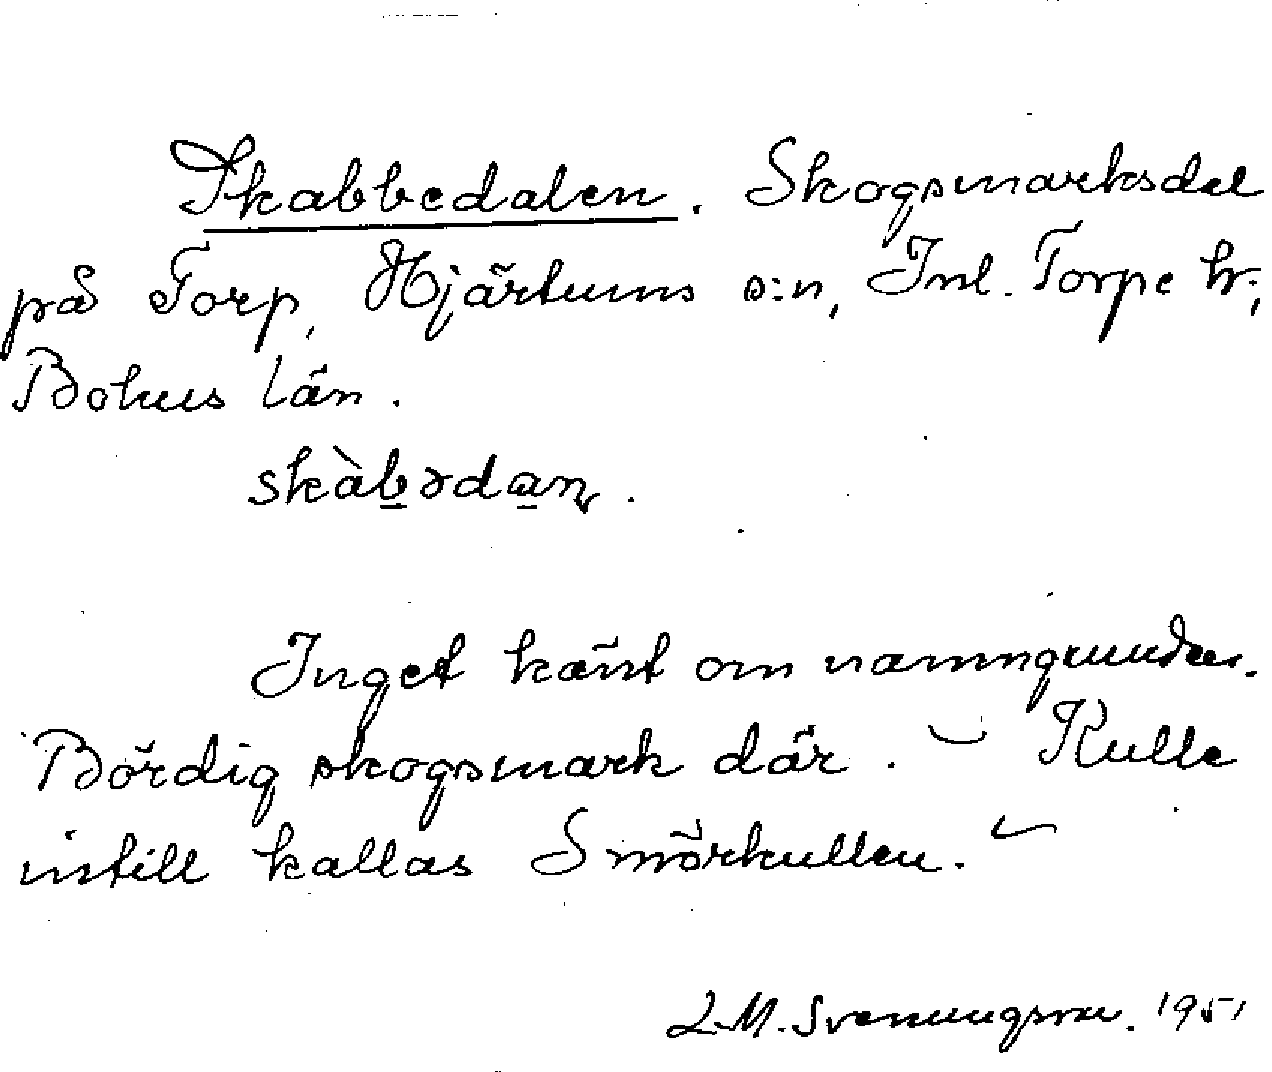 Skabbedalen. Skogsmarksdel
på Torp, Hjärtums s:n, Inl. Torpe hr;
Bohus län.
skàb̲əda̲n.
Inget känt om namngrunden.
Bördig skogsmark där. – Kulle
intill kallas Smörkullen. –
L.M. Svenungsson. 1951